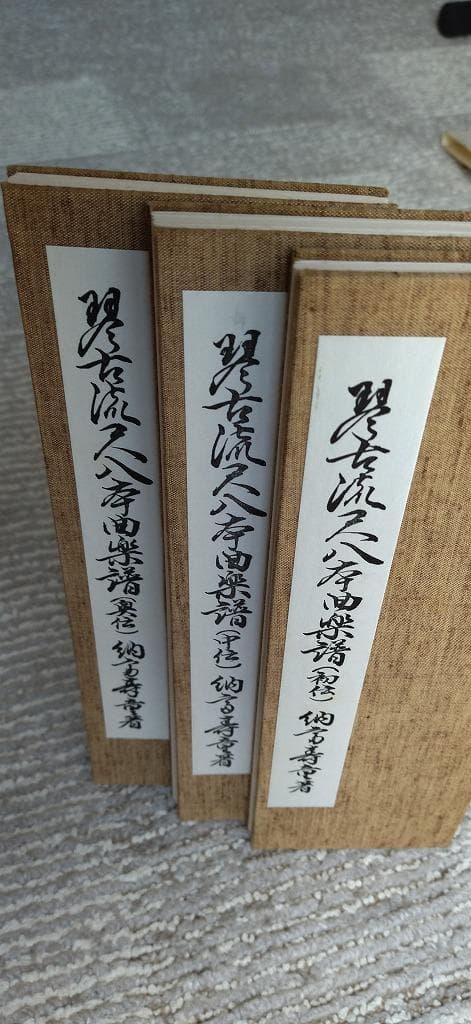 琴古流尺八本曲楽譜(初伝) 納富寿童著
琴古流尺八本曲楽譜(中伝) 納富寿童著
琴古流尺八本曲楽譜(奥伝) 納富寿童著